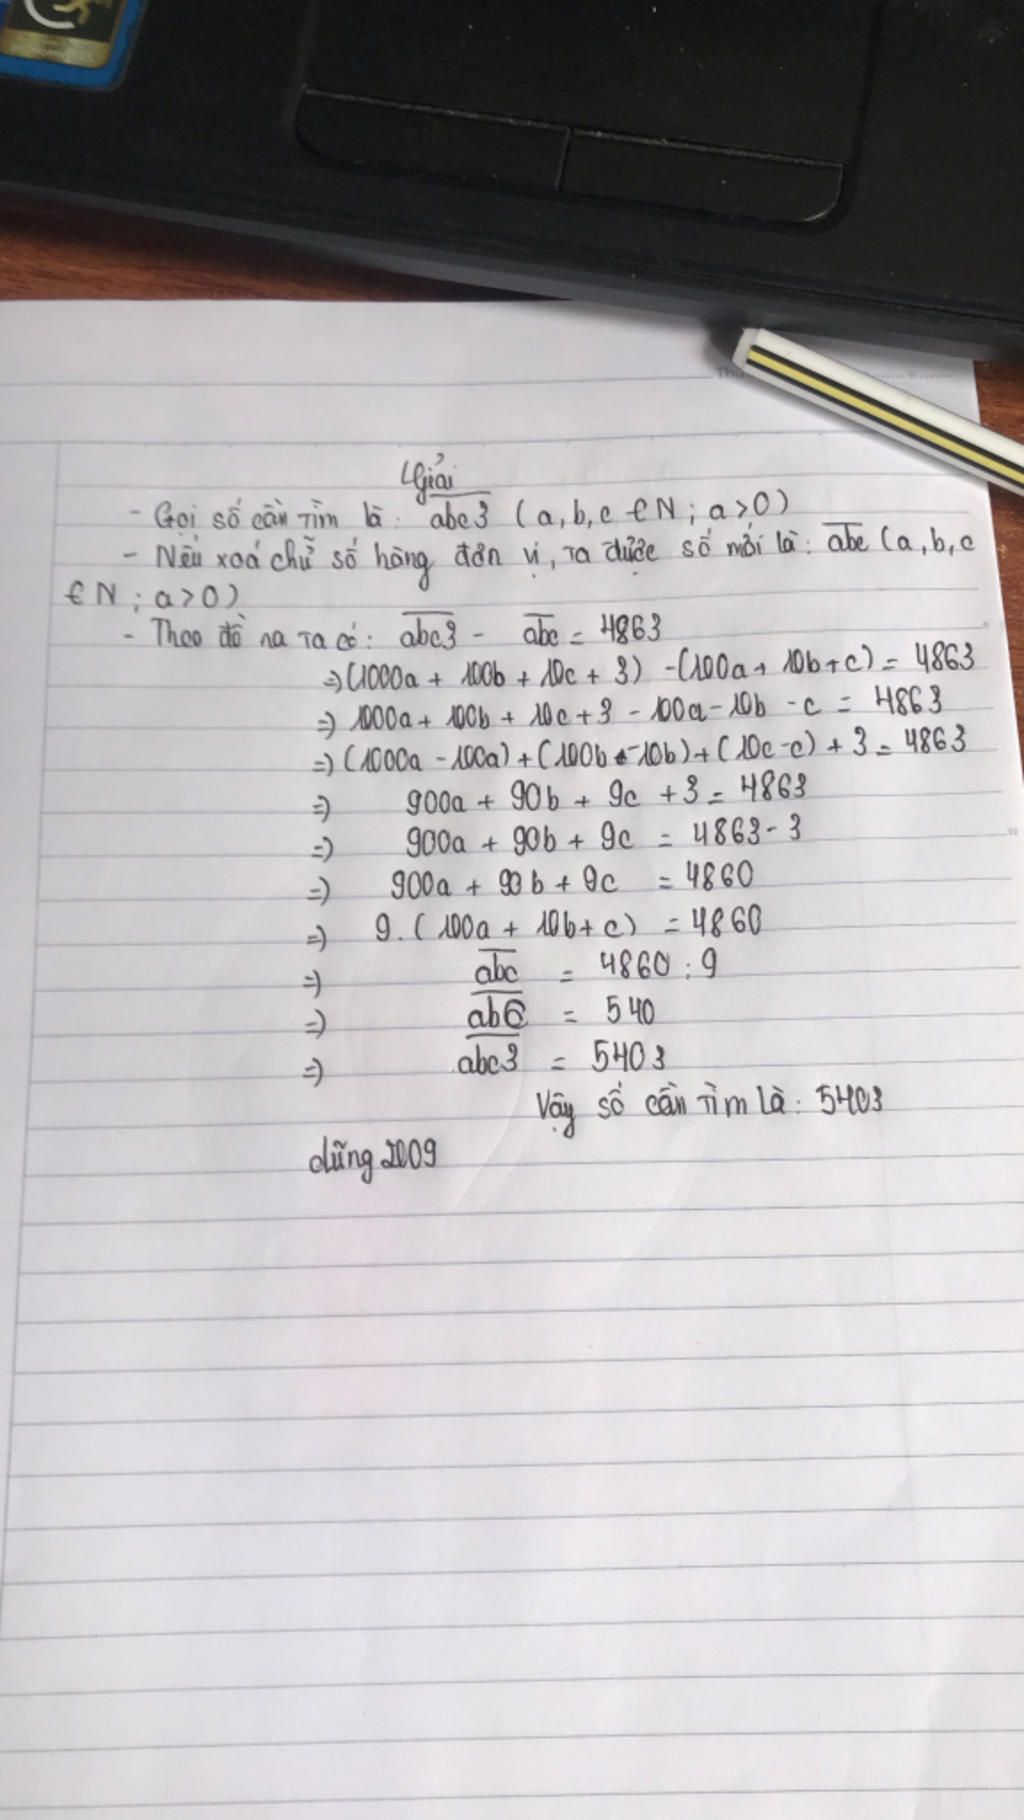 Giải
- Gọi số cần tìm là: abc3 (a, b, c ∈ N; a > 0)
- Nếu xoá chữ số hàng đơn vị, ta được số mới là: abc (a, b, c
∈ N; a > 0)
- Theo đề ra ta có: abc3 - abc = 4863
=> (1000a + 100b + 10c + 3) - (100a + 10b + c) = 4863
=> 1000a + 100b + 10c + 3 - 100a - 10b - c = 4863
=> (1000a - 100a) + (100b - 10b) + (10c - c) + 3 = 4863
=> 900a + 90b + 9c + 3 = 4863
=> 900a + 90b + 9c = 4863 - 3
=> 900a + 90b + 9c = 4860
=> 9. (100a + 10b + c) = 4860
=> abc = 4860 : 9
=> abc = 540
=> abc3 = 5403
Vậy số cần tìm là: 5403
dũng2009